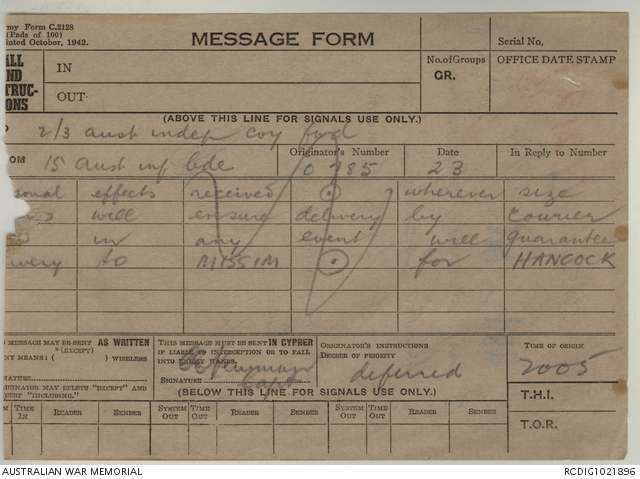 my Form C.2128
(Pads of 100)
inted October, 1942.
MESSAGE FORM
Serial No.
ALL
ND
TRUC-
ONS
IN
OUT
No. of Groups
GR.
OFFICE DATE STAMP
(ABOVE THIS LINE FOR SIGNALS USE ONLY.)
O 2/3 aust indep coy fwd
OM 15 aust inf bde
Originator's Number
0785
Date
23
In Reply to Number
sonal effects received wherever size
will ensure delivery by courier
in any event will guarantee
ivery to MISSIM for HANCOCK
MESSAGE MAY BE SENT AS WRITTEN
(EXCEPT)
NY MEANS: ( ) WIRELESS
NATURE
GINATOR MAY DELETE "EXCEPT" AND
SERT "INCLUDING."
THIS MESSAGE MUST BE SENT IN CYPHER
IF LIABLE TO INTERCEPTION OR TO FALL
INTO ENEMY HANDS.
SIGNATURE
Capt
ORIGINATOR'S INSTRUCTIONS
DEGREE OF PRIORITY
deferred
TIME OF ORIGIN
2005
(BELOW THIS LINE FOR SIGNALS USE ONLY.)
T.H.I.
T.O.R.
TIME IN READER SENDER SYSTEM OUT TIME OUT READER SENDER SYSTEM OUT TIME OUT READER SENDER
AUSTRALIAN WAR MEMORIAL RCDIG1021896